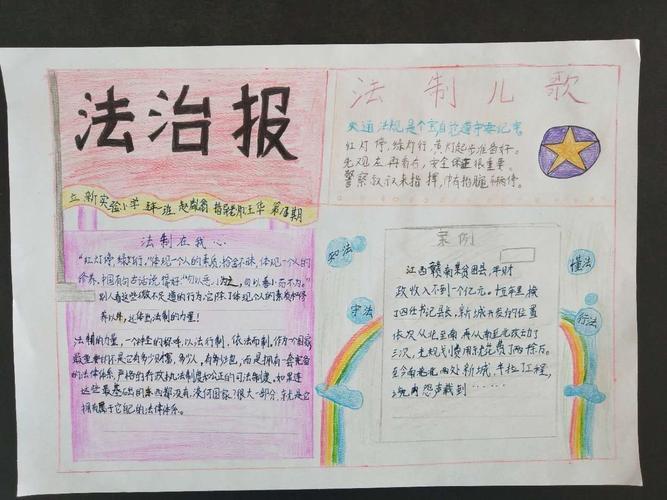 法治报
立新实验小学 班 指导老师王华 第 期
法制在我心
"红灯停,绿灯行,"体现一个人的素质,拾金不昧,体现一个人的
修养,中国有句古话说得好:"勿以恶小为之,勿以善小而不为。"
别人看这些微不足道的行为,它除了体现一个人的素质和修
养以外,这体出法制的力量!
法制的力量,一个神圣的称呼,以法行制,依法而制。作为一个国家
最重要的不是它有多少财富,多少人,有多少兵,而是拥有一套完备
的法律体系,严格的行政执法制度和公正的司法制度。如果连
这些最基础的东西都没有,谈何国家?很大一部分,就是它
拥有属于它自己的法律体系。
法制儿歌
交通法规是个宝自觉遵守要记牢
红灯停,绿灯行,黄灯起步准备好。
先观左再看右,安全保证很重要。
警察叔叔来指挥,
案例
江西赣南某贫困县,年财
政收入不到一个亿元。十年里,换
了四任书记县长,新城开发的位置
依次从北至南再从南至北改动了
三次,土规划费用就花费了两 万。
至今南北两处新城,半拉子工程,
境内怨声载到……
知法
守法
懂法
行法